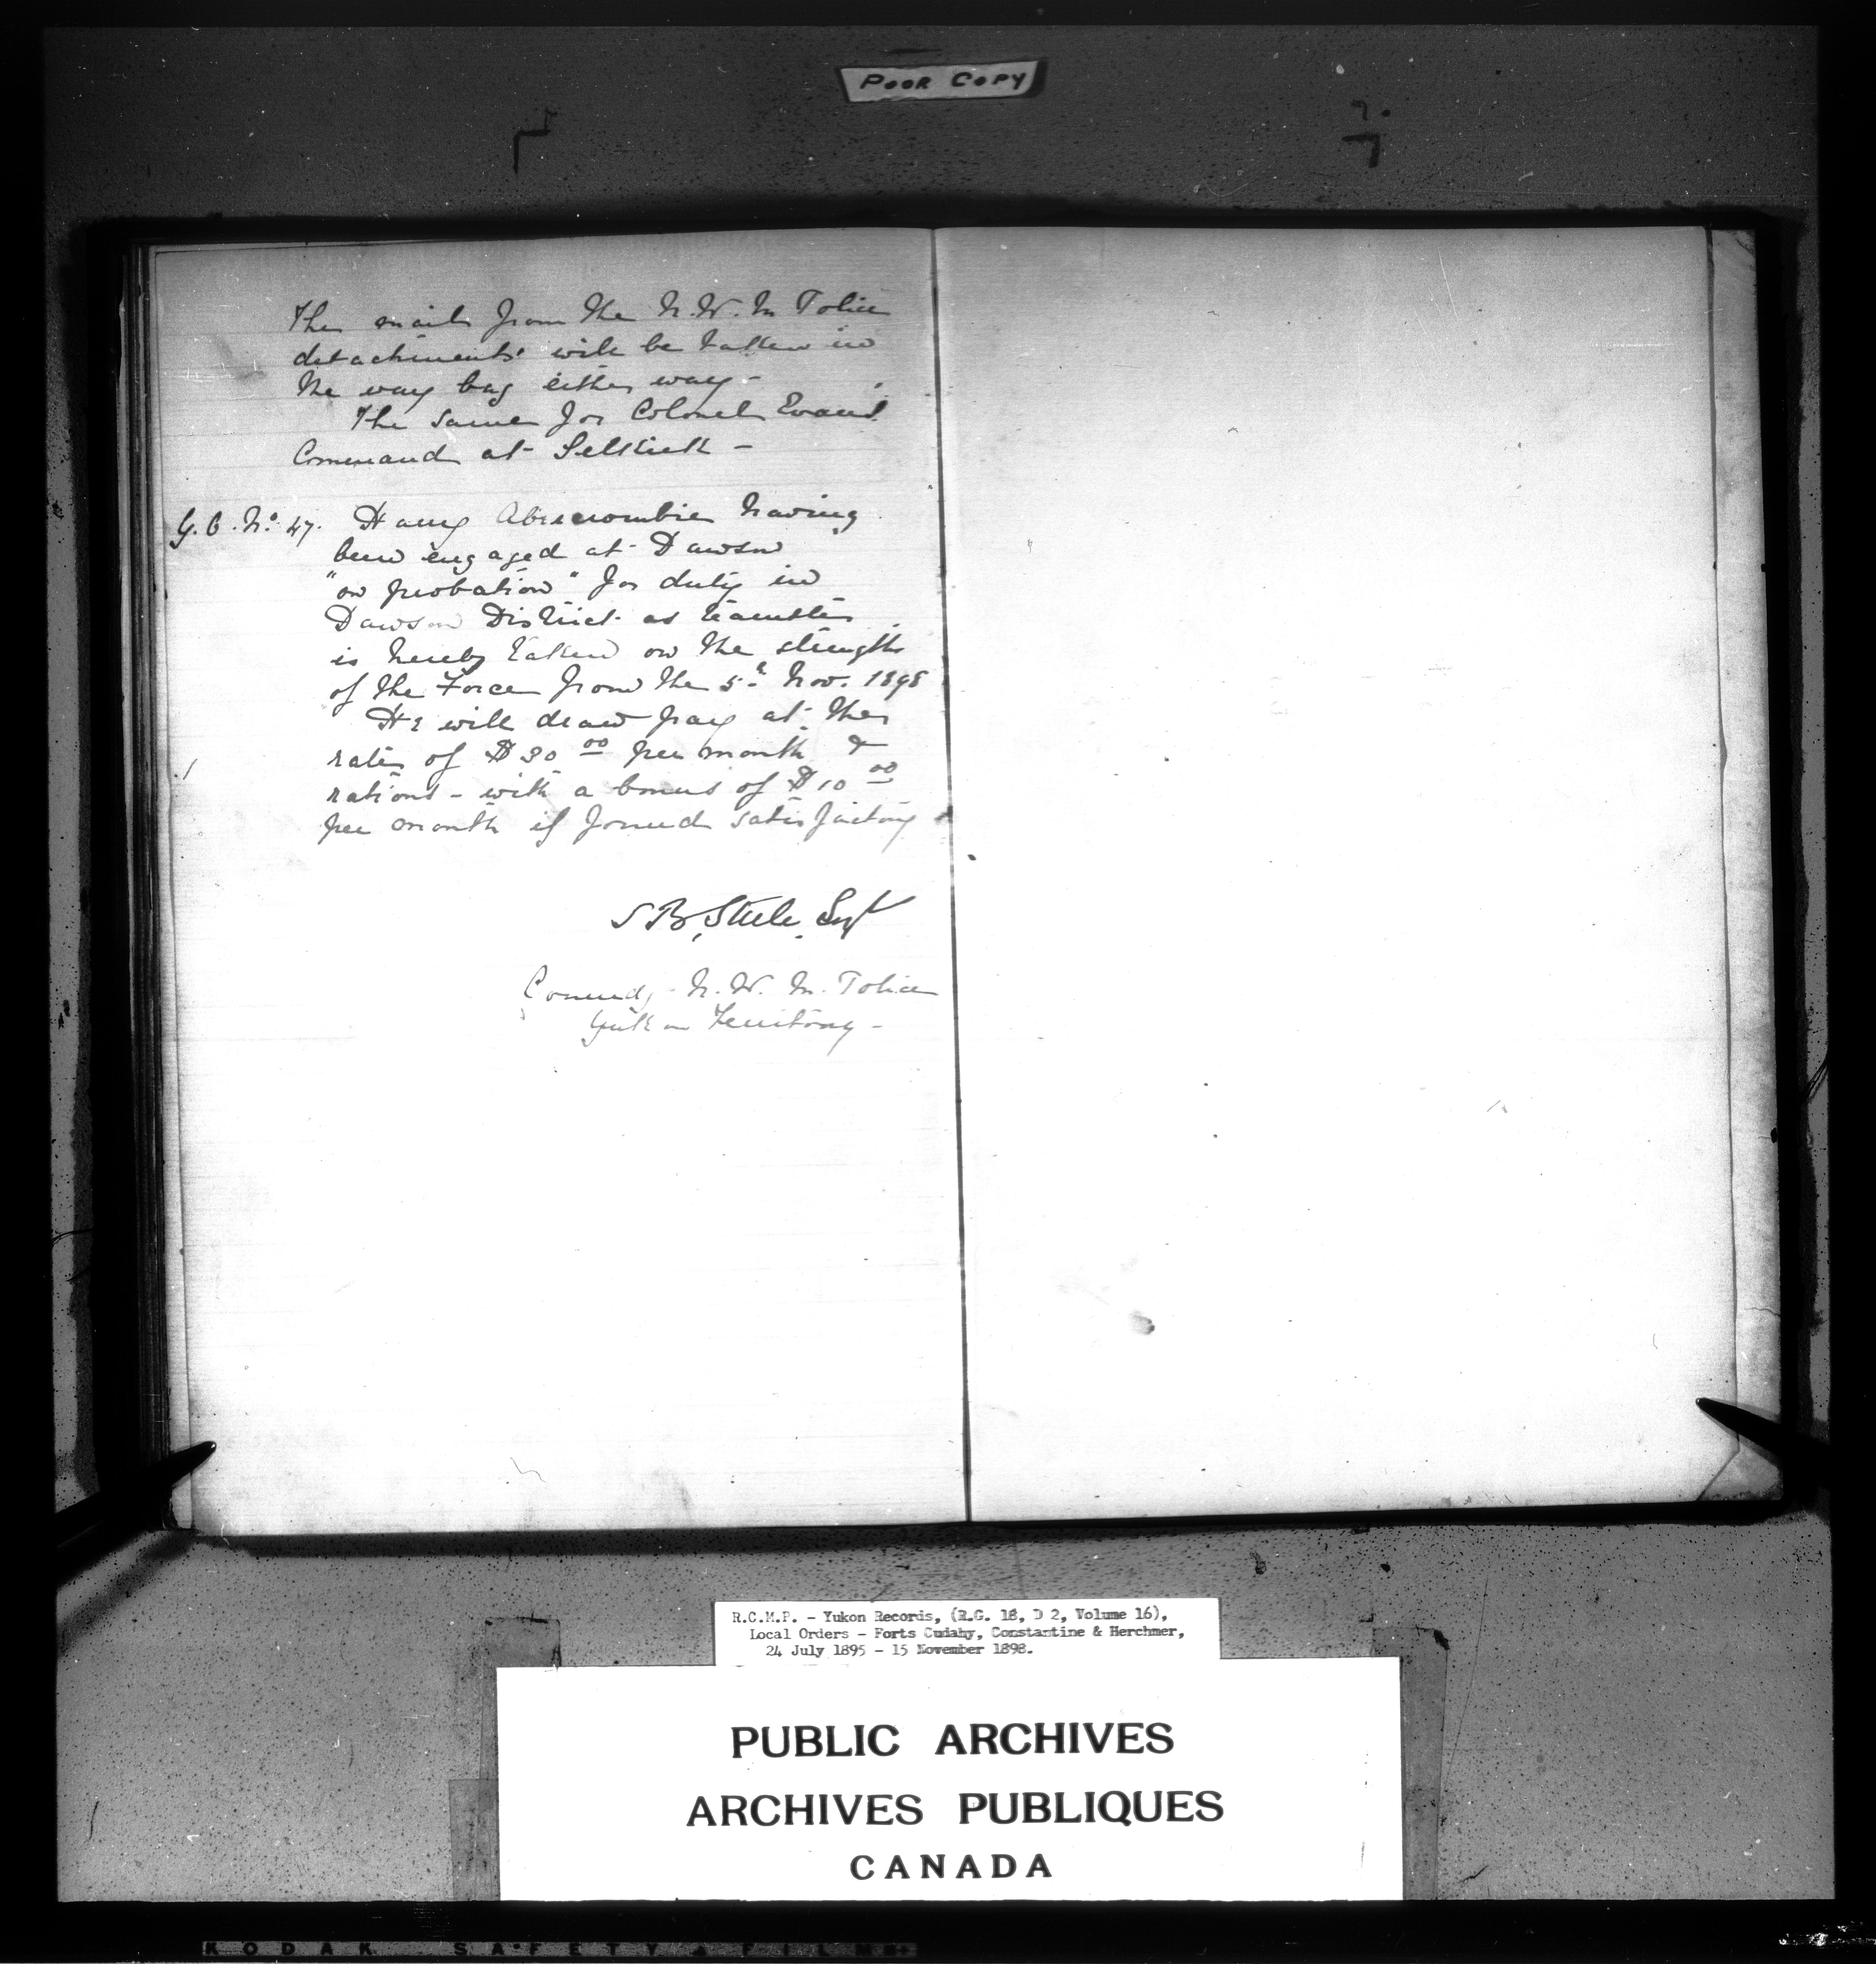 POOR COPY
The mails from the N.W.M Police
detachments will be taken in
the way bag either way -
The same for Colonel Evans'
Command at Selkirk -
G.O. No. 47. Harry Abercrombie having
been engaged at Dawson
"on probation" for duty in
Dawson District as teamster
is hereby taken on the strength
of the Force from the 5th Nov. 1898
He will draw pay at the
rate of $30 00 per month &
rations - with a bonus of $10 00
per month if found satisfactory
S B, Steele, Supt
Commdg - N. W. M. Police
Yukon Territory -
R.C.M.P. - Yukon Records, (R.G. 18, D 2, Volume 16),
Local Orders - Forts Cudahy, Constantine & Herchmer,
24 July 1895 - 15 November 1898.
PUBLIC ARCHIVES
ARCHIVES PUBLIQUES
CANADA
KODAK SAFETY FILM